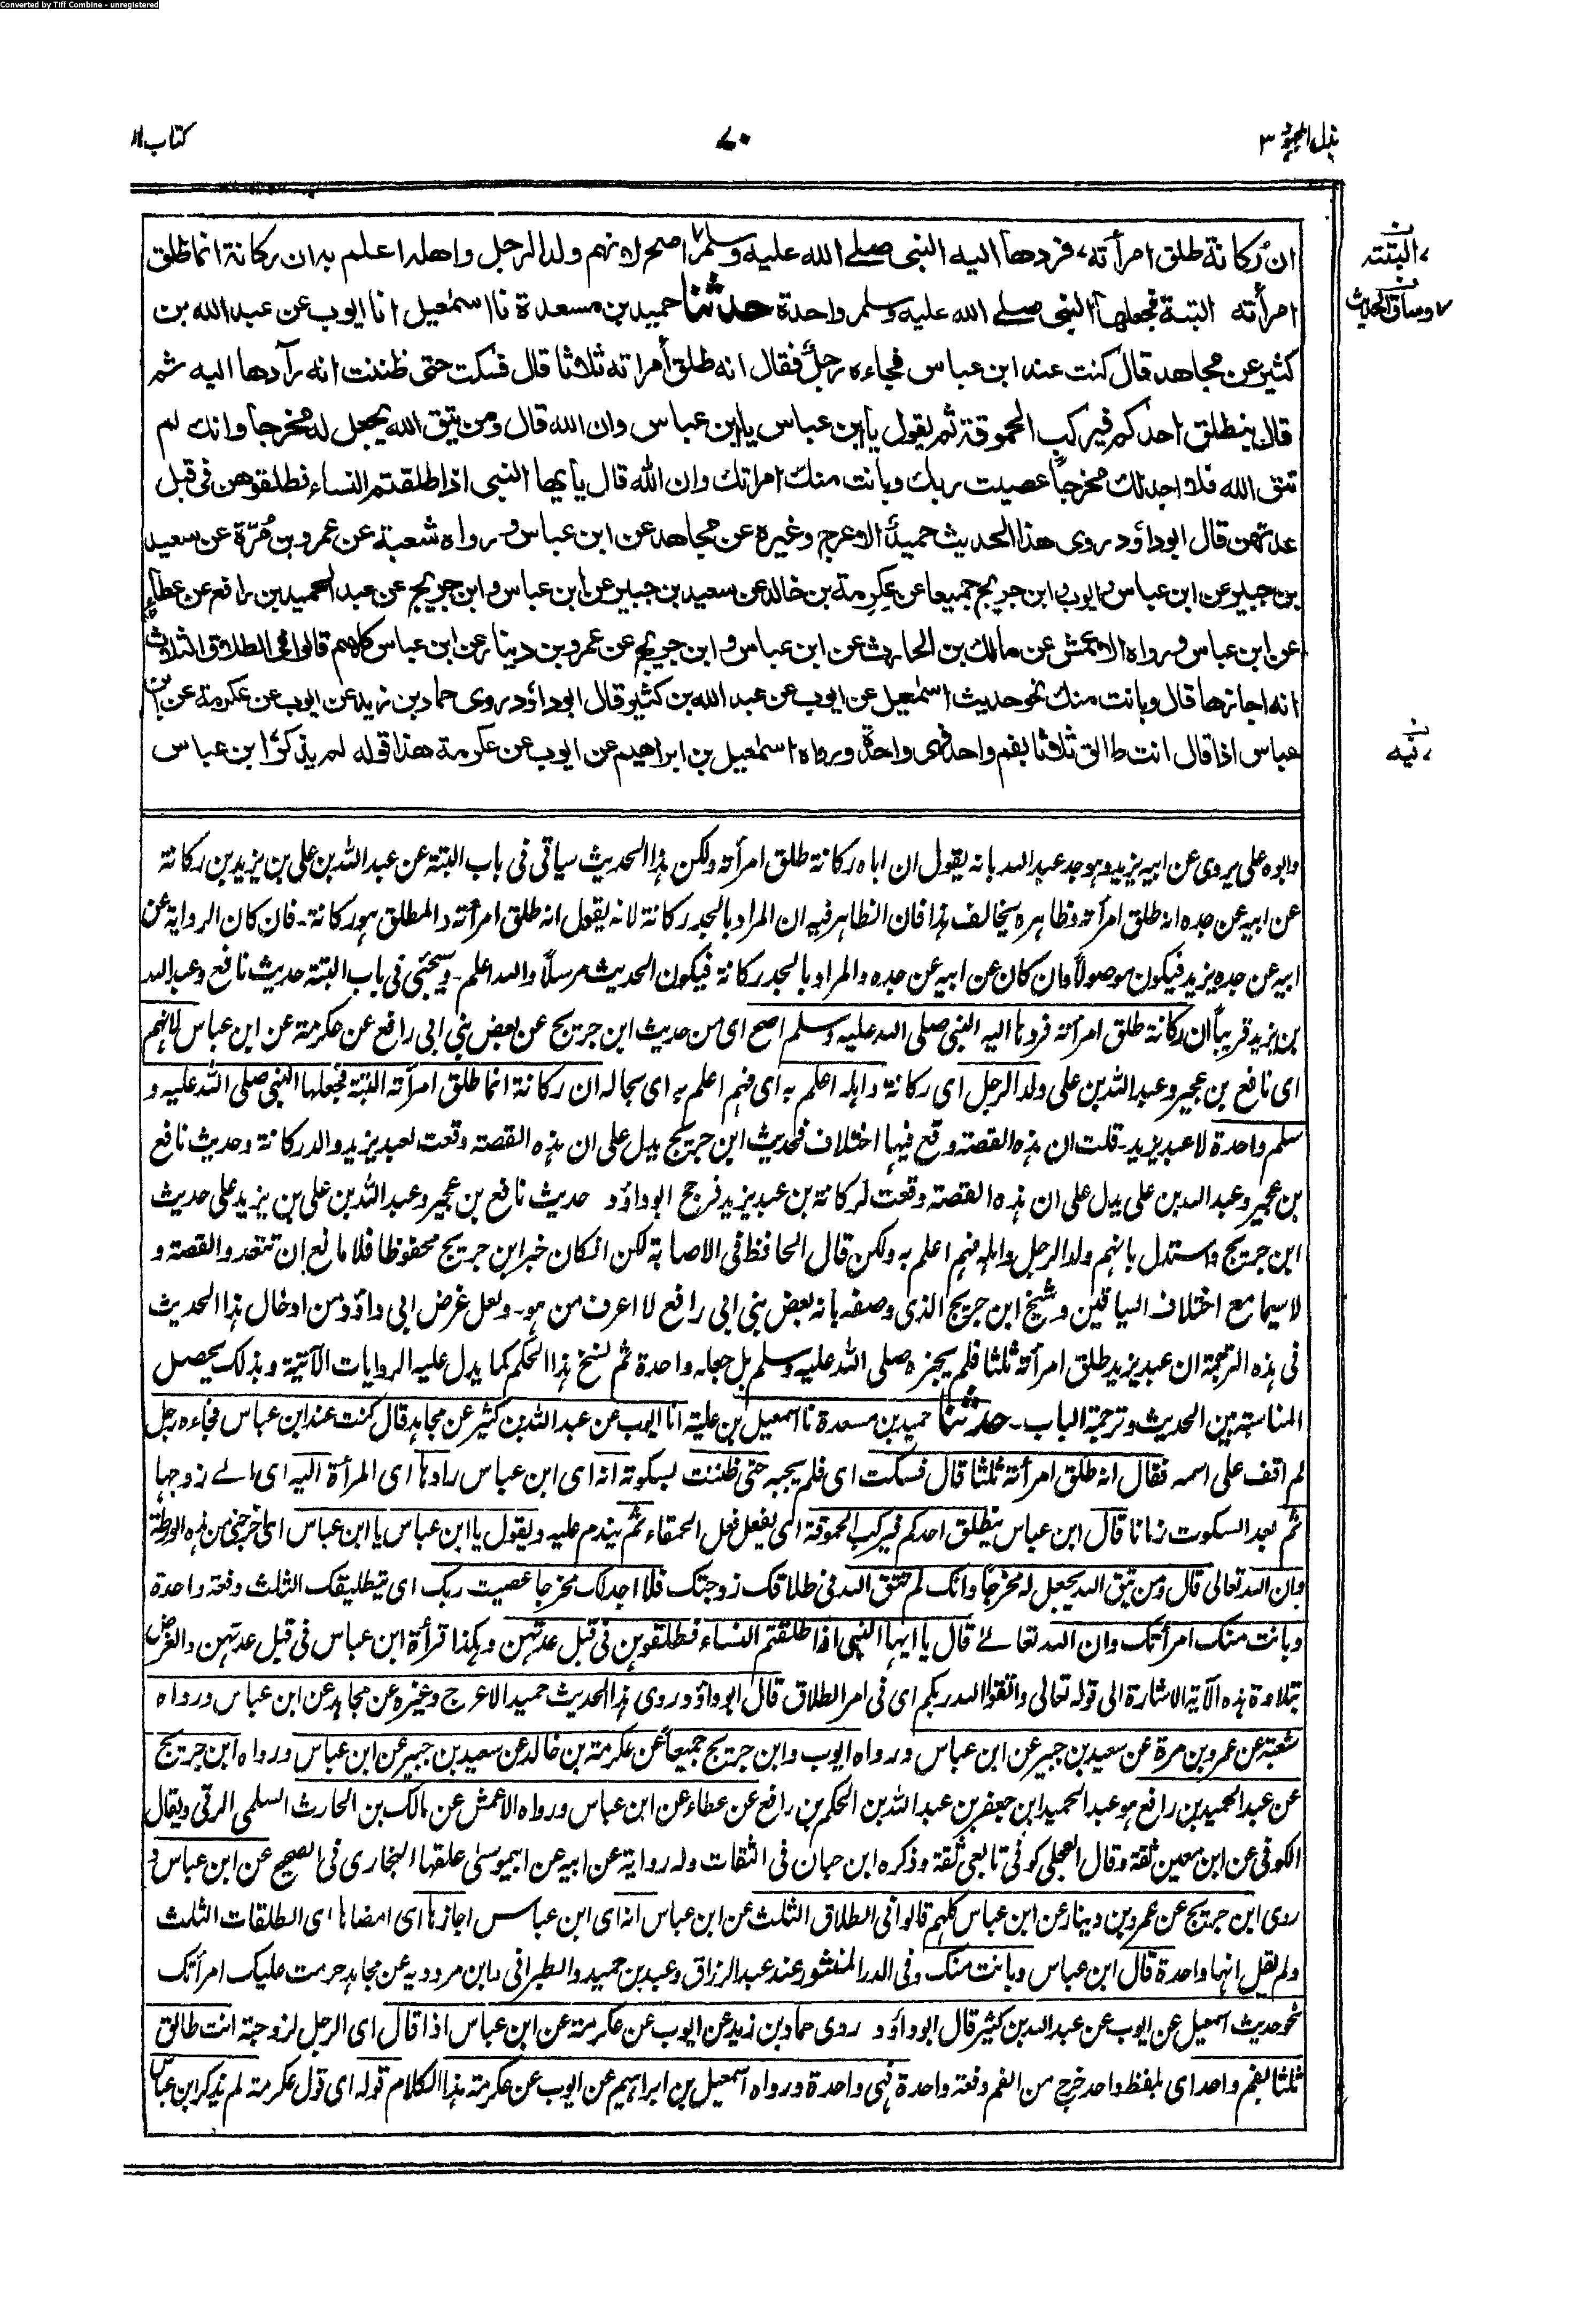 Converted by Tiff Combine - unregistered
بذل المجهود ٣
٧٠
كتاب الا
ان ركانة طلق امرأته فردها اليه النبي صلے الله عليه وسلم اصح لانهم ولد الرجل واهله اعلم به ان ركانة انما طلق
امرأته البتة فجعلها النبي صلے الله عليه وسلم واحدة حدثنا حميد بن مسعدة نا اسمٰعيل انا ايوب عن عبد الله بن
كثير عن مجاهد قال كنت عند ابن عباس فجاءه رجل فقال انه طلق امراته ثلاثا قال فسكت حتى ظننت انه رادها اليه ثم
قال ينطلق احدكم فيركب الحموقة ثم يقول يا ابن عباس يا ابن عباس وان الله قال ومن يتق الله يجعل له مخرجا وانك لم
تتق الله فلا اجد لك مخرجا عصيت ربك وبانت منك امراتك وان الله قال يأيها النبي اذا طلقتم النساء فطلقوهن في قبل
عدتهن قال ابوداؤد روى هذا الحديث حميد الاعرج وغيره عن مجاهد عن ابن عباس ورواه شعبة عن عمرو بن مُرّة عن سعيد
بن جبير عن ابن عباس وايوب وابن جريج جميعا عن عكرمة بن خالد عن سعيد بن جبير عن ابن عباس وابن جريج عن عبد الحميد بن رافع عن عطاء
عن ابن عباس ورواه الاعمش عن مالك بن الحارث عن ابن عباس وابن جريج عن عمرو بن دينار عن ابن عباس كلهم قالوا في الطلاق الثلاث
انه اجازها قال وبانت منك نحو حديث اسمٰعيل عن ايوب عن عبد الله بن كثير قال ابوداؤد روى حماد بن زيد عن ايوب عن عكرمة عن ابن
عباس اذا قال انت طالق ثلاثا بفم واحد فهي واحدة ورواه اسمٰعيل بن ابراهيم عن ايوب عن عكرمة هذا قوله لم يذكر ابن عباس
البتة
وساق الحديث
وابوه على يروى عن ابيه يزيد وهو جد عبد الله بانه يقول ان اباه ركانة طلق امرأته ولكن هذا الحديث سياتي في باب البتة عن عبد الله بن علي بن يزيد بن ركانة
عن ابيه عن جده انه طلق امرأته وظاهره يخالف هذا فان الظاهر فيه ان المراد بالجد ركانة لانه يقول انه طلق امرأته والمطلق هو ركانة۔ فان كان الرواية عن
ابيه عن جده يزيد فيكون موصولاً وان كان عن ابيه عن جده والمراد بالجد ركانة فيكون الحديث مرسلاً والله اعلم۔ وسيجئ في باب البتة حديث نافع وعبد الله
بن يزيد قريباً ان ركانة طلق امرأته فردها اليه النبي صلى الله عليه وسلم اصح اي من حديث ابن جريج عن بعض بني ابي رافع عن عكرمة عن ابن عباس لانهم
اي نافع بن عجير وعبد الله بن على ولد الرجل اي ركانة واهله اعلم به اي فهم اعلم به اي بحاله ان ركانة انما طلق امرأته البتة فجعلها النبي صلى الله عليه و
سلم واحدة لا عبد يزيد۔ قلت ان هذه القصة وقع فيها اختلاف فحديث ابن جريج يدل على ان هذه القصة وقعت لعبد يزيد والد ركانة وحديث نافع
بن عجير وعبد الله بن على يدل على ان هذه القصة وقعت لركانة بن عبد يزيد فرجح ابوداؤد حديث نافع بن عجير وعبد الله بن علي بن يزيد على حديث
ابن جريج واستدل بانهم ولد الرجل واهله فهم اعلم به ولكن قال الحافظ في الاصابة لكن ان كان خبر ابن جريج محفوظا فلا مانع ان تتعدد القصة و
لا سيما مع اختلاف السياقين وشيخ ابن جريج الذي وصفه بانه بعض بني ابي رافع لا اعرف من هو۔ ولعل غرض ابي داؤد من ادخال هذا الحديث
في هذه الترجمة ان عبد يزيد طلق امرأته ثلثا فلم يجزه صلى الله عليه وسلم بل جعله واحدة ثم نسخ هذا الحكم كما يدل عليه الروايات الآتية وبذلك يحصل
المناسبة بين الحديث وترجمة الباب۔ حدثنا حميد بن مسعدة نا اسمعيل بن علية انا ايوب عن عبد الله بن كثير عن مجاهد قال كنت عند ابن عباس فجاءه رجل
لم اقف على اسمه فقال انه طلق امرأته ثلثا قال فسكت اي فلم يجبه حتى ظننت بسكوته انه اي ابن عباس رادها اي المرأة اليه اي الے زوجها
ثم بعد السكوت زمانا قال ابن عباس ينطلق احدكم فيركب الحموقة اي يفعل فعل الحمقاء ثم يندم عليه ويقول يا ابن عباس يا ابن عباس اي اخرجني من هذه الورطة
وان الله تعالى قال ومن يتق الله يجعل له مخرجا وانك لم تتق الله في طلاقك زوجتك فلا اجد لك مخرجا عصيت ربك اي بتطليقك الثلث دفعة واحدة
وبانت منك امرأتك وان الله تعالےٰ قال يا ايها النبي اذا طلقتم النساء فطلقوهن في قبل عدتهن وهكذا قرأة ابن عباس في قبل عدتهن والغرض
بتلاوة هذه الآية الاشارة الى قوله تعالى واتقوا الله ربكم اي في امر الطلاق قال ابوداؤد روى هذا الحديث حميد الاعرج وغيره عن مجاهد عن ابن عباس ورواه
شعبة عن عمرو بن مرة عن سعيد بن جبير عن ابن عباس ورواه ايوب وابن جريج جميعاً عن عكرمة بن خالد عن سعيد بن جبير عن ابن عباس ورواه ابن جريج
عن عبد الحميد بن رافع هو عبد الحميد ابن جعفر بن عبد الله بن الحكم بن رافع عن عطاء عن ابن عباس ورواه الاعمش عن مالك بن الحارث السلمي الرقي ويقال
الكوفي عن ابن معين ثقة وقال العجلي كوفي تابعي ثقة وذكره ابن حبان في الثقات وله رواية عن ابيه عن ابي موسىٰ علقها البخاري في الصحيح عن ابن عباس و
روى ابن جريج عن عمرو بن دينار عن ابن عباس كلهم قالوا في الطلاق الثلث عن ابن عباس انه اي ابن عباس اجازها اي امضاها اي الطلقات الثلث
ولم يقل انها واحدة قال ابن عباس وبانت منك وفي الدر المنثور عند عبد الرزاق وعبد بن حميد والطبراني وابن مردويه عن مجاهد حرمت عليك امرأتك
نحو حديث اسمعيل عن ايوب عن عبد الله بن كثير قال ابوداؤد روى حماد بن زيد عن ايوب عن عكرمة عن ابن عباس اذا قال اي الرجل لزوجته انت طالق
ثلثا بفم واحد اي بلفظ واحد خرج من الفم دفعة واحدة فهي واحدة ورواه اسمعيل بن ابراهيم عن ايوب عن عكرمة هذا الكلام قوله اي قول عكرمة لم يذكر ابن عباس